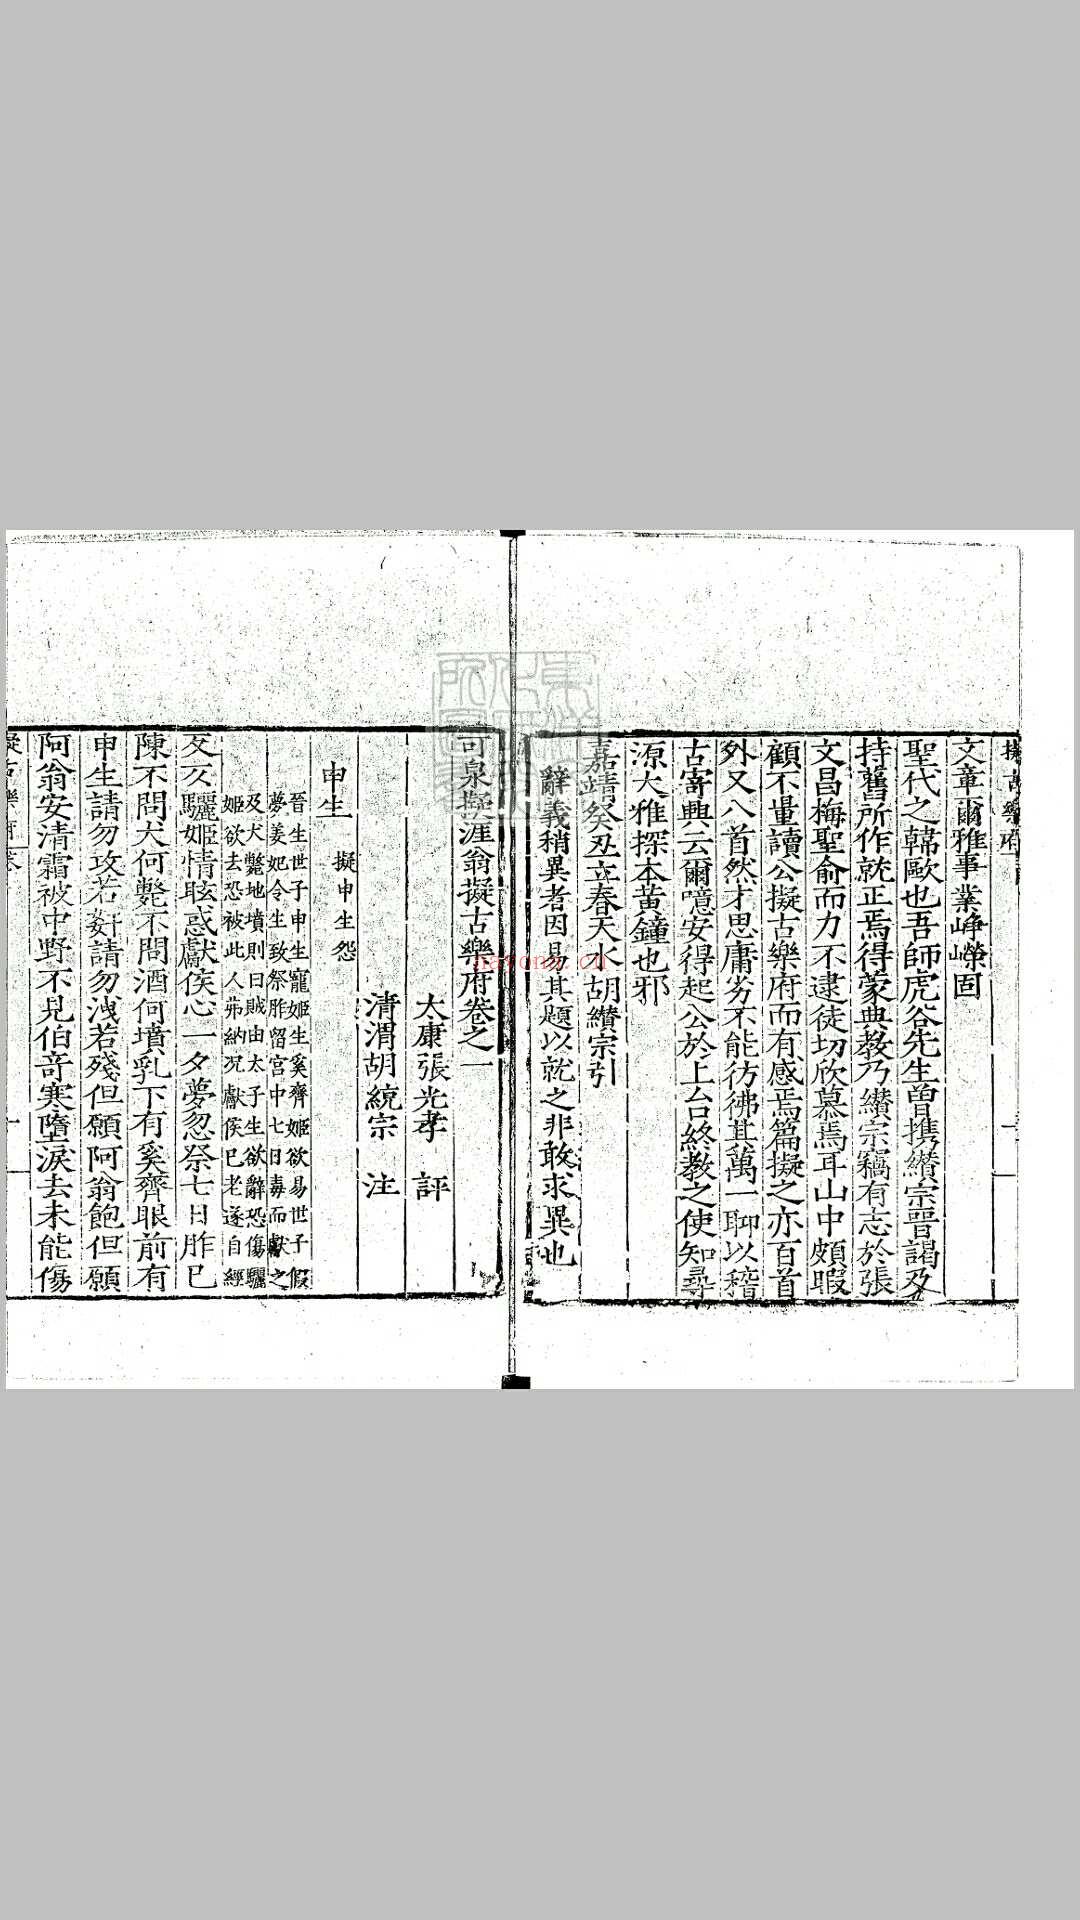 擬古樂府
文章爾雅事業崢嶸固
聖代之韓歐也吾師虎谷先生曽携纉宗晉謁及
持舊所作就正焉得蒙典教乃纉宗竊有志於張
文昌梅聖俞而力不逮徒切欣慕焉耳山中頗暇
顧不量讀公擬古樂府而有感焉篇擬之亦百首
外又八首然才思庸劣不能彷彿其萬一聊以稽
古寄興云爾噫安得起公於上台終教之使知尋
源大雅探本黃鐘也邪
嘉靖癸丑立春天水胡纉宗引
辭義稍異者因易其題以就之非敢求異也
可泉擬涯翁擬古樂府卷之一
太康張光孝 評
清渭胡統宗 注
申生 擬申生怨
晉生世子申生寵姬生奚齊姬欲易世子假
夢姜妃令生致祭胙留宮中七日毒而獻之
及犬斃地墳則曰賊由太子生欲辭恐傷驪
姬欲去恐被此人弟納况獻侯已老遂自經
交交驪姬情眩惑獻侯心一夕夢忽祭七日胙已
陳不問犬何斃不問酒何墳乳下有奚齊眼前有
申生請勿攻若姦請勿洩若殘但願阿翁飽但願
阿翁安清霜被中野不見伯竒寒墮淚去未能傷
擬古樂府 卷
hayona.cn